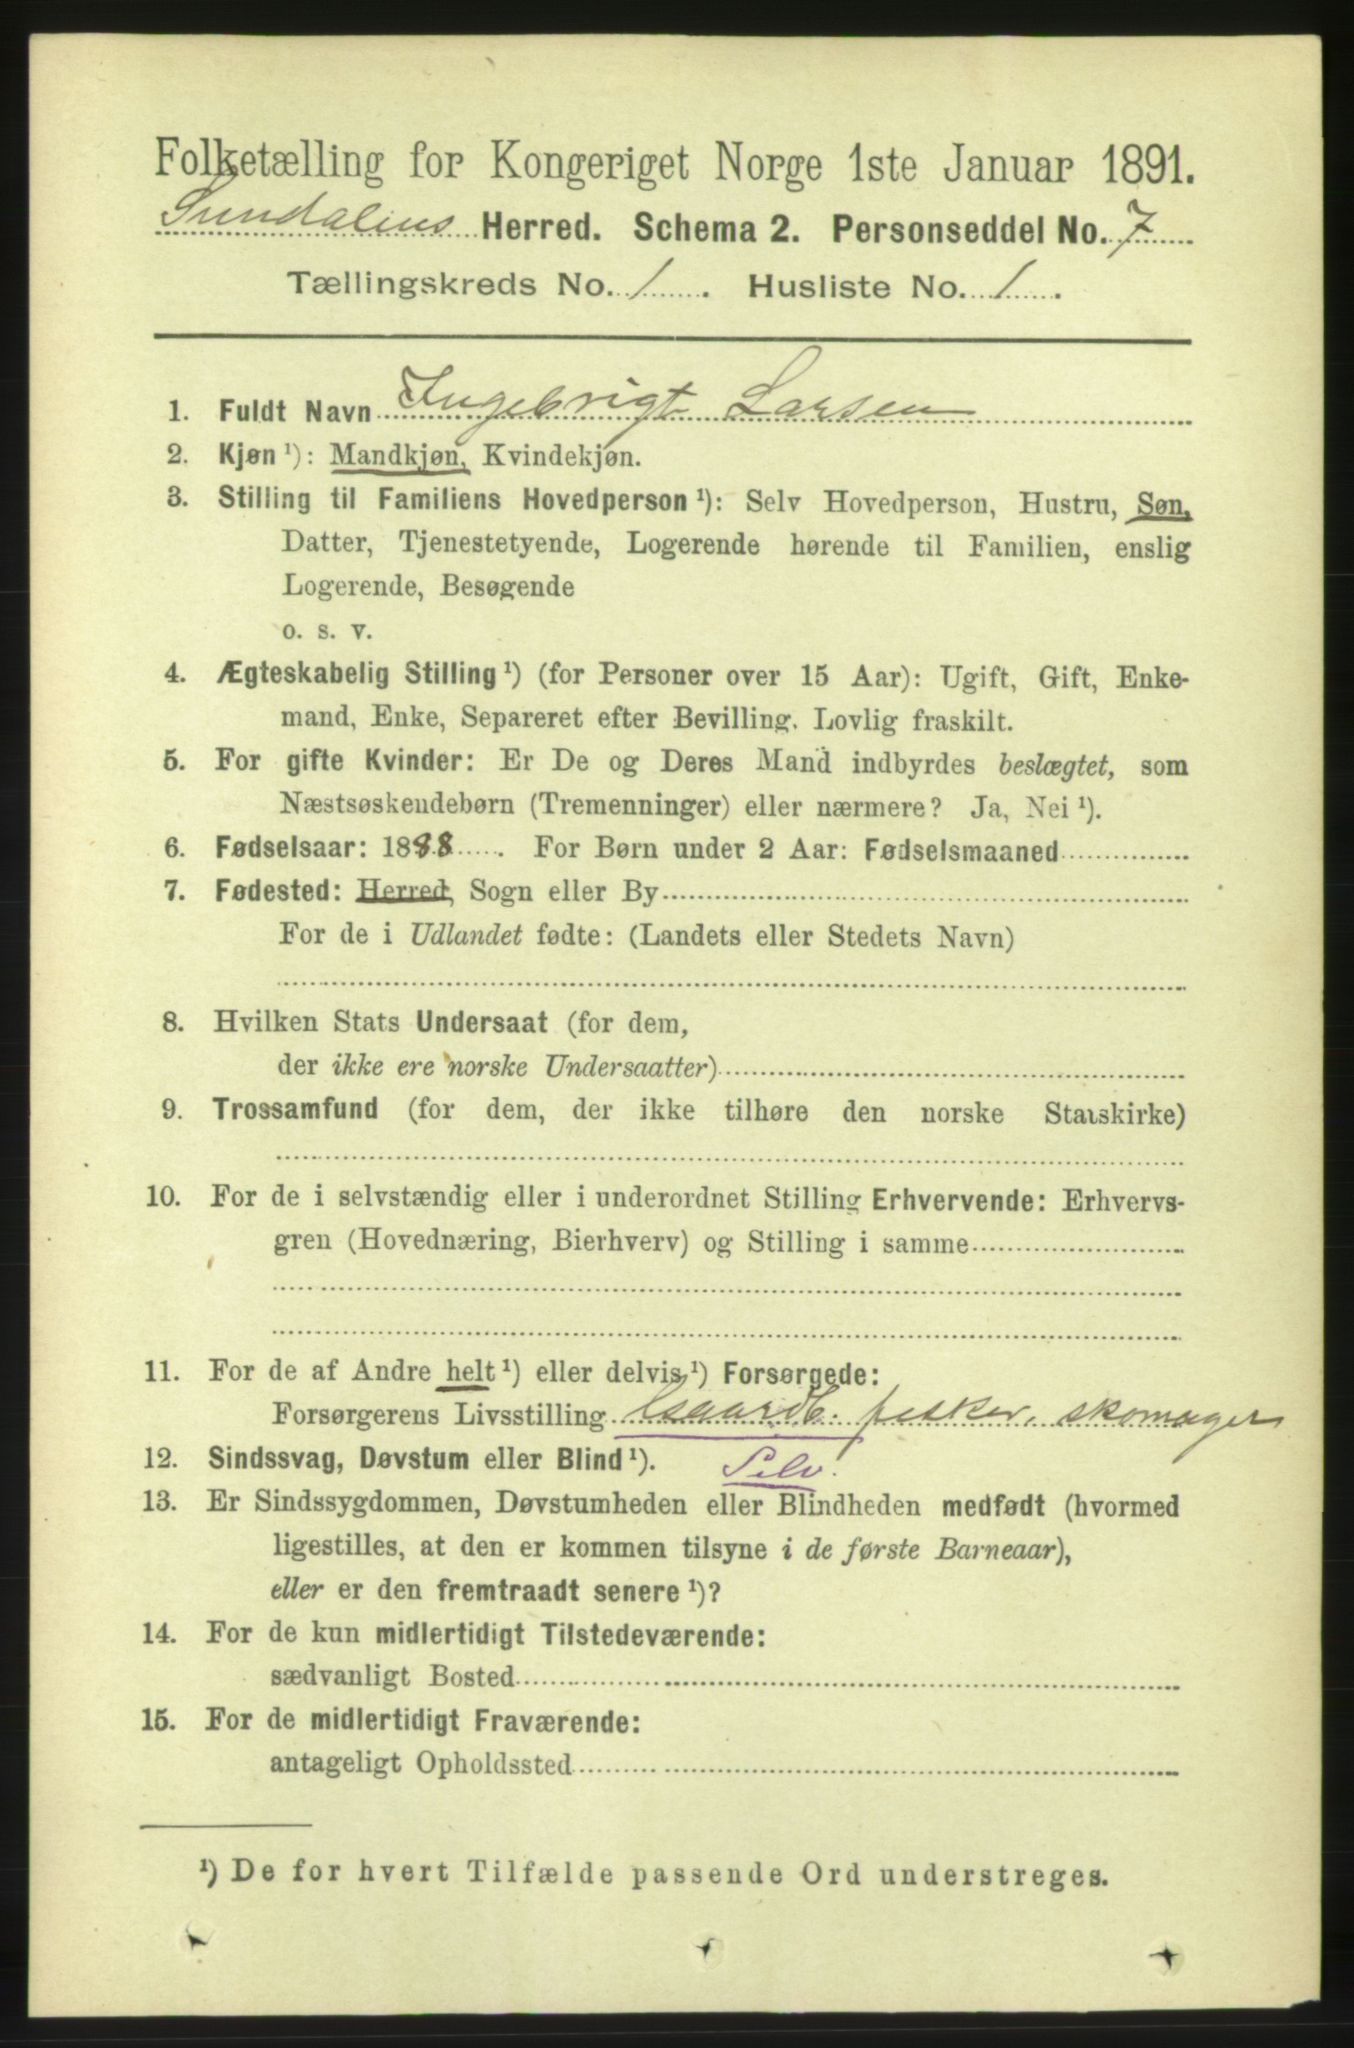 Folketælling for Kongeriget Norge 1ste Januar 1891.
Sundalens Herred. Schema 2. Personseddel No. 7
Tællingskreds No. 1. Husliste No. 1.
1. Fuldt Navn Ingebrigt Larsen
2. Kjøn ¹): Mandkjøn, Kvindekjøn.
3. Stilling til Familiens Hovedperson ¹): Selv Hovedperson, Hustru, Søn,
Datter, Tjenestetyende, Logerende hørende til Familien, enslig
Logerende, Besøgende
o. s. v.
4. Ægteskabelig Stilling ¹) (for Personer over 15 Aar): Ugift, Gift, Enke-
mand, Enke, Separeret efter Bevilling. Lovlig fraskilt.
5. For gifte Kvinder: Er De og Deres Mand indbyrdes beslægtet, som
Næstsøskendebørn (Tremenninger) eller nærmere? Ja, Nei ¹).
6. Fødselsaar: 1888. For Børn under 2 Aar: Fødselsmaaned
7. Fødested: Herred, Sogn eller By
For de i Udlandet fødte: (Landets eller Stedets Navn)
8. Hvilken Stats Undersaat (for dem,
der ikke ere norske Undersaatter)
9. Trossamfund (for dem, der ikke tilhøre den norske Statskirke)
10. For de i selvstændig eller i underordnet Stilling Erhvervende: Erhvervs-
gren (Hovednæring, Bierhverv) og Stilling i samme
11. For de af Andre helt ¹) eller delvis ¹) Forsørgede:
Forsørgerens Livsstilling Gaardb. fisker, skomager
12. Sindssvag, Døvstum eller Blind ¹). Selv.
13. Er Sindssygdommen, Døvstumheden eller Blindheden medfødt (hvormed
ligestilles, at den er kommen tilsyne i de første Barneaar),
eller er den fremtraadt senere ¹)?
14. For de kun midlertidigt Tilstedeværende:
sædvanligt Bosted
15. For de midlertidigt Fraværende:
antageligt Opholdssted
¹) De for hvert Tilfælde passende Ord understreges.